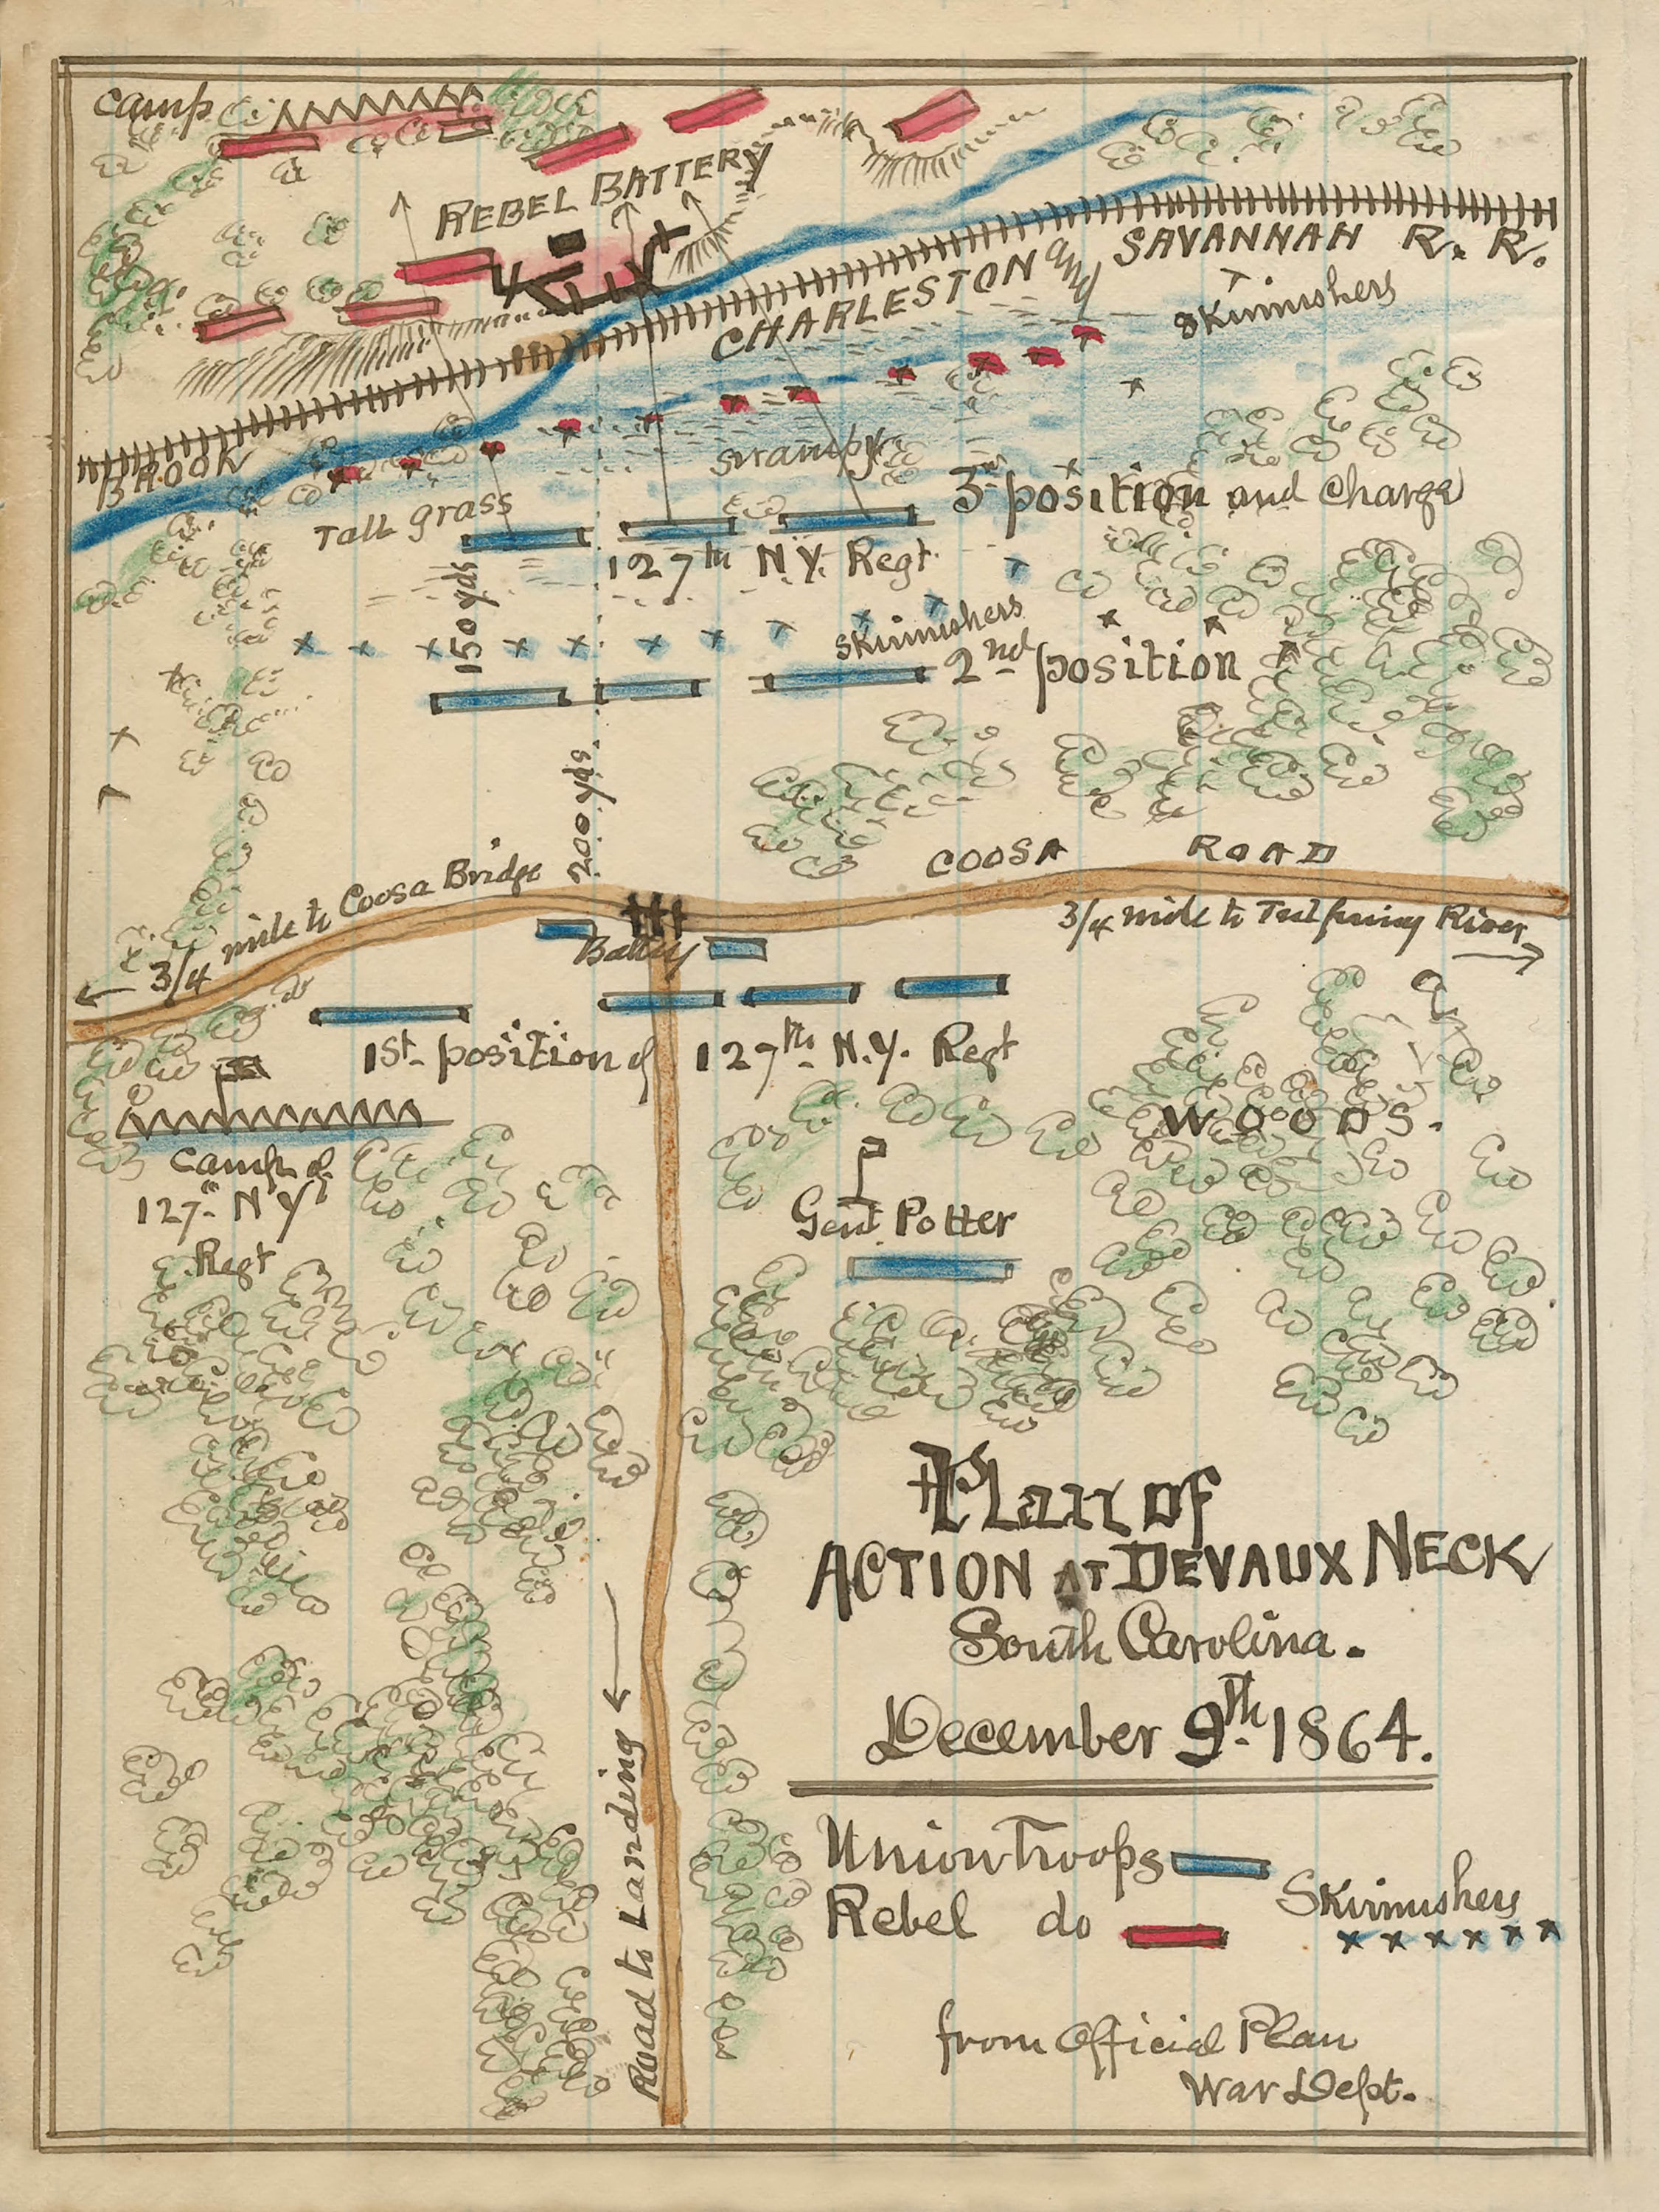 camp
REBEL BATTERY
CHARLESTON and SAVANNAH R. R.
Skirmishers
BROOK
swampy
Tall grass
3rd position and Charge
127th N.Y. Regt.
150 yds
Skirmishers
2nd position
200 yds.
COOSA ROAD
3/4 mile to Coosa Bridge
3/4 mile to Tulfinny River
Battery
1st position of 127th N.Y. Regt
WOODS.
Camp of
127th N Y
Regt
Genl. Potter
Plan of
ACTION AT DEVAUX NECK
South Carolina.
December 9th 1864.
Road to Landing
Union Troops
Rebel do
Skirmishers
from Official Plan
War Dept.